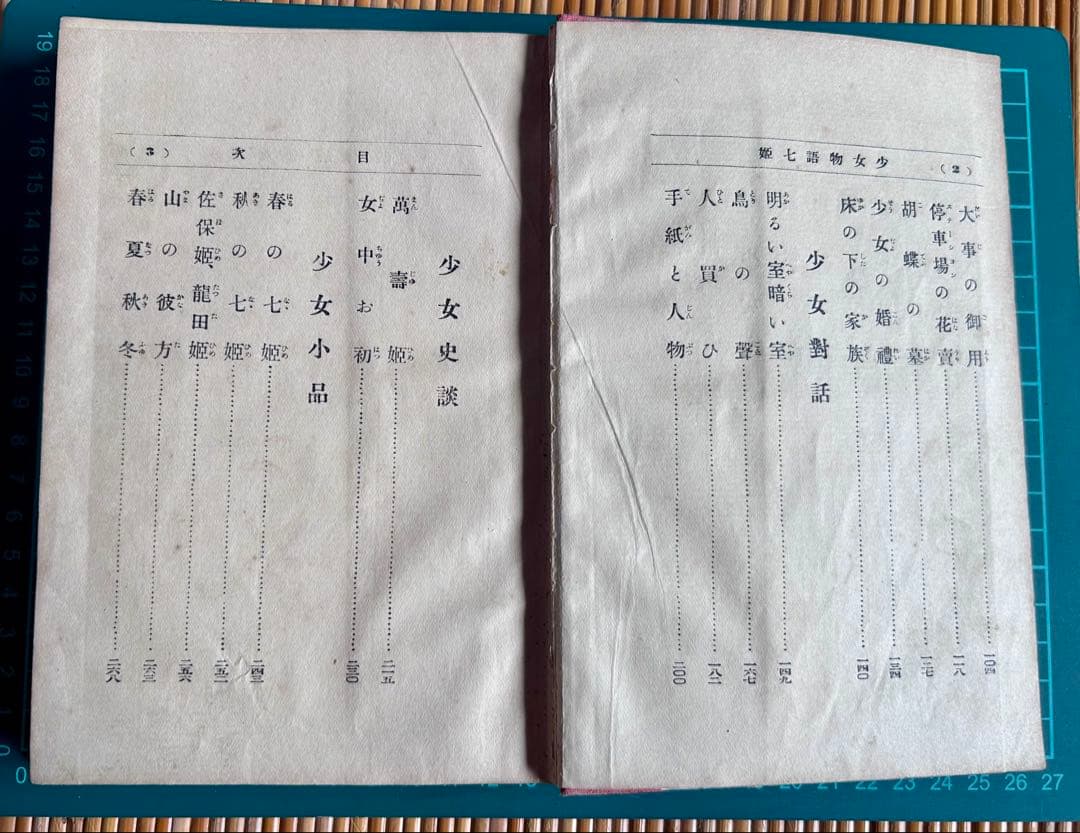 (2) 少女物語七姫
大事の御用……一〇四
停車場の花賣……一一八
胡蝶の墓……一二七
少女の婚禮……一三四
床の下の家族……一四〇
少女對話
明るい室暗い室……一四九
鳥の聲……一六七
人買ひ……一八二
手紙と人物……二〇〇
目次 (3)
少女史談
萬壽姫……二一五
女中お初……二三〇
少女小品
春の七姫……二四三
秋の七姫……二五二
佐保姫、龍田姫……二五六
山の彼方……二六三
春夏秋冬……二六八
19
18
17
16
15
14
13
12
11
10
9
8
7
6
5
4
3
2
1
0
0
20 21 22 23 24 25 26 27